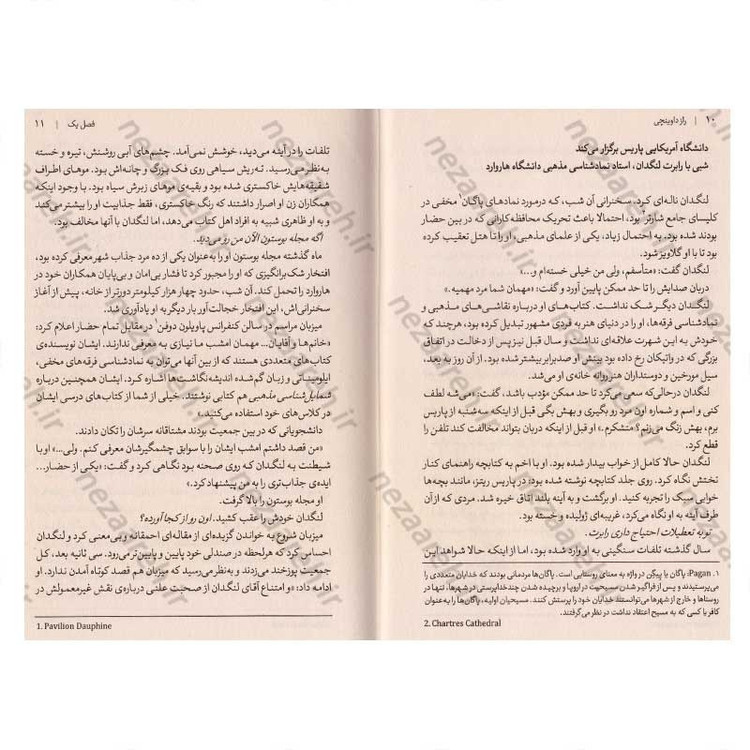 ۱۰ | راز داوینچی
دانشگاه آمریکایی پاریس برگزار می‌کند
شبی با رابرت لنگدان، استاد نمادشناسی مذهبی دانشگاه هاروارد
لنگدان ناله‌ای کرد. سخنرانی آن شب، که درمورد نمادهای پاگان۱ مخفی در
کلیسای جامع شارتر۲ بود، احتمالا باعث تحریک محافظه‌کارانی که در بین حضار
بودند شده بود. به احتمال زیاد، یکی از علمای مذهبی، او را تا هتل تعقیب کرده
بود تا با او گلاویز شود.
لنگدان گفت: «متأسفم، ولی من خیلی خسته‌ام و...»
دربان صدایش را تا حد ممکن پایین آورد و گفت: «مهمان شما مرد مهمیه.»
لنگدان دیگر شک نداشت. کتاب‌های او درباره نقاشی‌های مذهبی و
نمادشناسی فرقه‌ها، او را در دنیای هنر به فردی مشهور تبدیل کرده بود، هرچند که
خودش به این شهرت علاقه‌ای نداشت و سال قبل نیز پس از دخالت در اتفاق
بزرگی که در واتیکان رخ داده بود بینش او صدبرابر بیشتر شده بود. از آن روز به بعد،
سیل مورخین و دوستداران هنر روانه خانه‌ی او می‌شد.
لنگدان درحالی‌که سعی می‌کرد تا حد ممکن مؤدب باشد، گفت: «می‌شه لطف
کنی و اسم و شماره اون مرد رو بگیری و بهش بگی قبل از اینکه سه‌شنبه از پاریس
برم، بهش زنگ می‌زنم؟ متشکرم.» و قبل از اینکه دربان بتواند مخالفت کند تلفن را
قطع کرد.
لنگدان حالا کامل از خواب بیدار شده بود. او با اخم به کتابچه راهنمای کنار
تختش نگاه کرد. روی جلد کتابچه نوشته شده بود: «در پاریس ریتز، مانند بچه‌ها
خوابی سبک را تجربه کنید. او برگشت و به آینه بلند اتاق خیره شد. مردی که از آن
طرف آینه به او نگاه می‌کرد، غریبه‌ای ژولیده و خسته بود.
تو به تعطیلات احتیاج داری رابرت.
سال گذشته تلفات سنگینی به او وارد شده بود، اما از اینکه حالا شواهد این
۱. Pagan: پاگان یا پیگن در واژه به معنای روستایی است. پاگان‌ها مردمانی بودند که خدایان متعددی را
می‌پرستیدند و پس از فراگیر شدن مسیحیت در اروپا و برچیده شدن چندخداپرستی در شهرها، تنها در
روستاها و خارج از شهرها می‌توانستند خدایان خود را پرستش کنند. مسیحیان اولیه، پاگان‌ها را به‌عنوان
کافر یا کسی که به مسیح اعتقاد نداشت در نظر می‌گرفتند.
2. Chartres Cathedral
فصل یک | ۱۱
تلفات را در آینه می‌دید، خوشش نمی‌آمد. چشم‌های آبی روشنش، تیره و خسته
به‌نظر می‌رسید. ته‌ریش سیاهی روی فک بزرگ و چانه‌اش بود. موهای اطراف
شقیقه‌هایش خاکستری شده بود و بقیه‌ی موهای زبرش سیاه بود. با وجود اینکه
همکاران زن او اصرار داشتند که رنگ خاکستری، فقط جذابیت او را بیشتر می‌کند
و به او ظاهری شبیه به افراد اهل کتاب می‌دهد، اما لنگدان با آنها مخالف بود.
اگه مجله بوستون الآن من رو می‌دید.
ماه گذشته مجله بوستون او را به‌عنوان یکی از ده مرد جذاب شهر معرفی کرده بود،
افتخار شک‌برانگیزی که او را مجبور کرد تا فشار بی‌امان و بی‌پایان همکاران خود در
هاروارد را تحمل کند. آن شب، حدود چهار هزار کیلومتر دورتر از خانه، پیش از آغاز
سخنرانی‌اش، این افتخار خجالت‌آور بار دیگر به او یادآوری شد.
میزبان مراسم در سالن کنفرانس پاویلون دوفن۱ در مقابل تمام حضار اعلام کرد:
«خانم‌ها و آقایان... مهمان امشب ما نیازی به معرفی ندارند. ایشان نویسنده‌ی
کتاب‌های متعددی هستند که از بین آنها می‌توان به نمادشناسی فرقه‌های مخفی،
ایلومیناتی و زبان گم‌شده اندیشه‌نگاشت‌ها اشاره کرد. ایشان همچنین درباره
شمایل‌شناسی مذهبی هم کتابی نوشتند. خیلی از شما از کتاب‌های درسی ایشان
در کلاس‌های خود استفاده می‌کنید.»
دانشجویانی که در بین جمعیت بودند مشتاقانه سرشان را تکان دادند.
«من قصد داشتم امشب ایشان را با سوابق چشمگیرشان معرفی کنم. ولی...» او با
شیطنت به لنگدان که روی صحنه بود نگاهی کرد و گفت: «یکی از حضار...
ایده‌ی جذاب‌تری را به من پیشنهاد کرد.»
او مجله بوستون را بالا گرفت.
لنگدان خودش را عقب کشید. اون رو از کجا آورده؟
میزبان شروع به خواندن گزیده‌ای از مقاله‌ای احمقانه و بی‌معنی کرد و لنگدان
احساس کرد که هرلحظه در صندلی خود پایین و پایین‌تر می‌رود. سی ثانیه بعد، کل
جمعیت پوزخند می‌زدند و به‌نظر می‌رسید که میزبان هم قصد کوتاه آمدن ندارد. او
ادامه داد: «و امتناع آقای لنگدان از صحبت علنی درباره‌ی نقش غیرمعمولش در
1. Pavilion Dauphine
nezaareh.ir